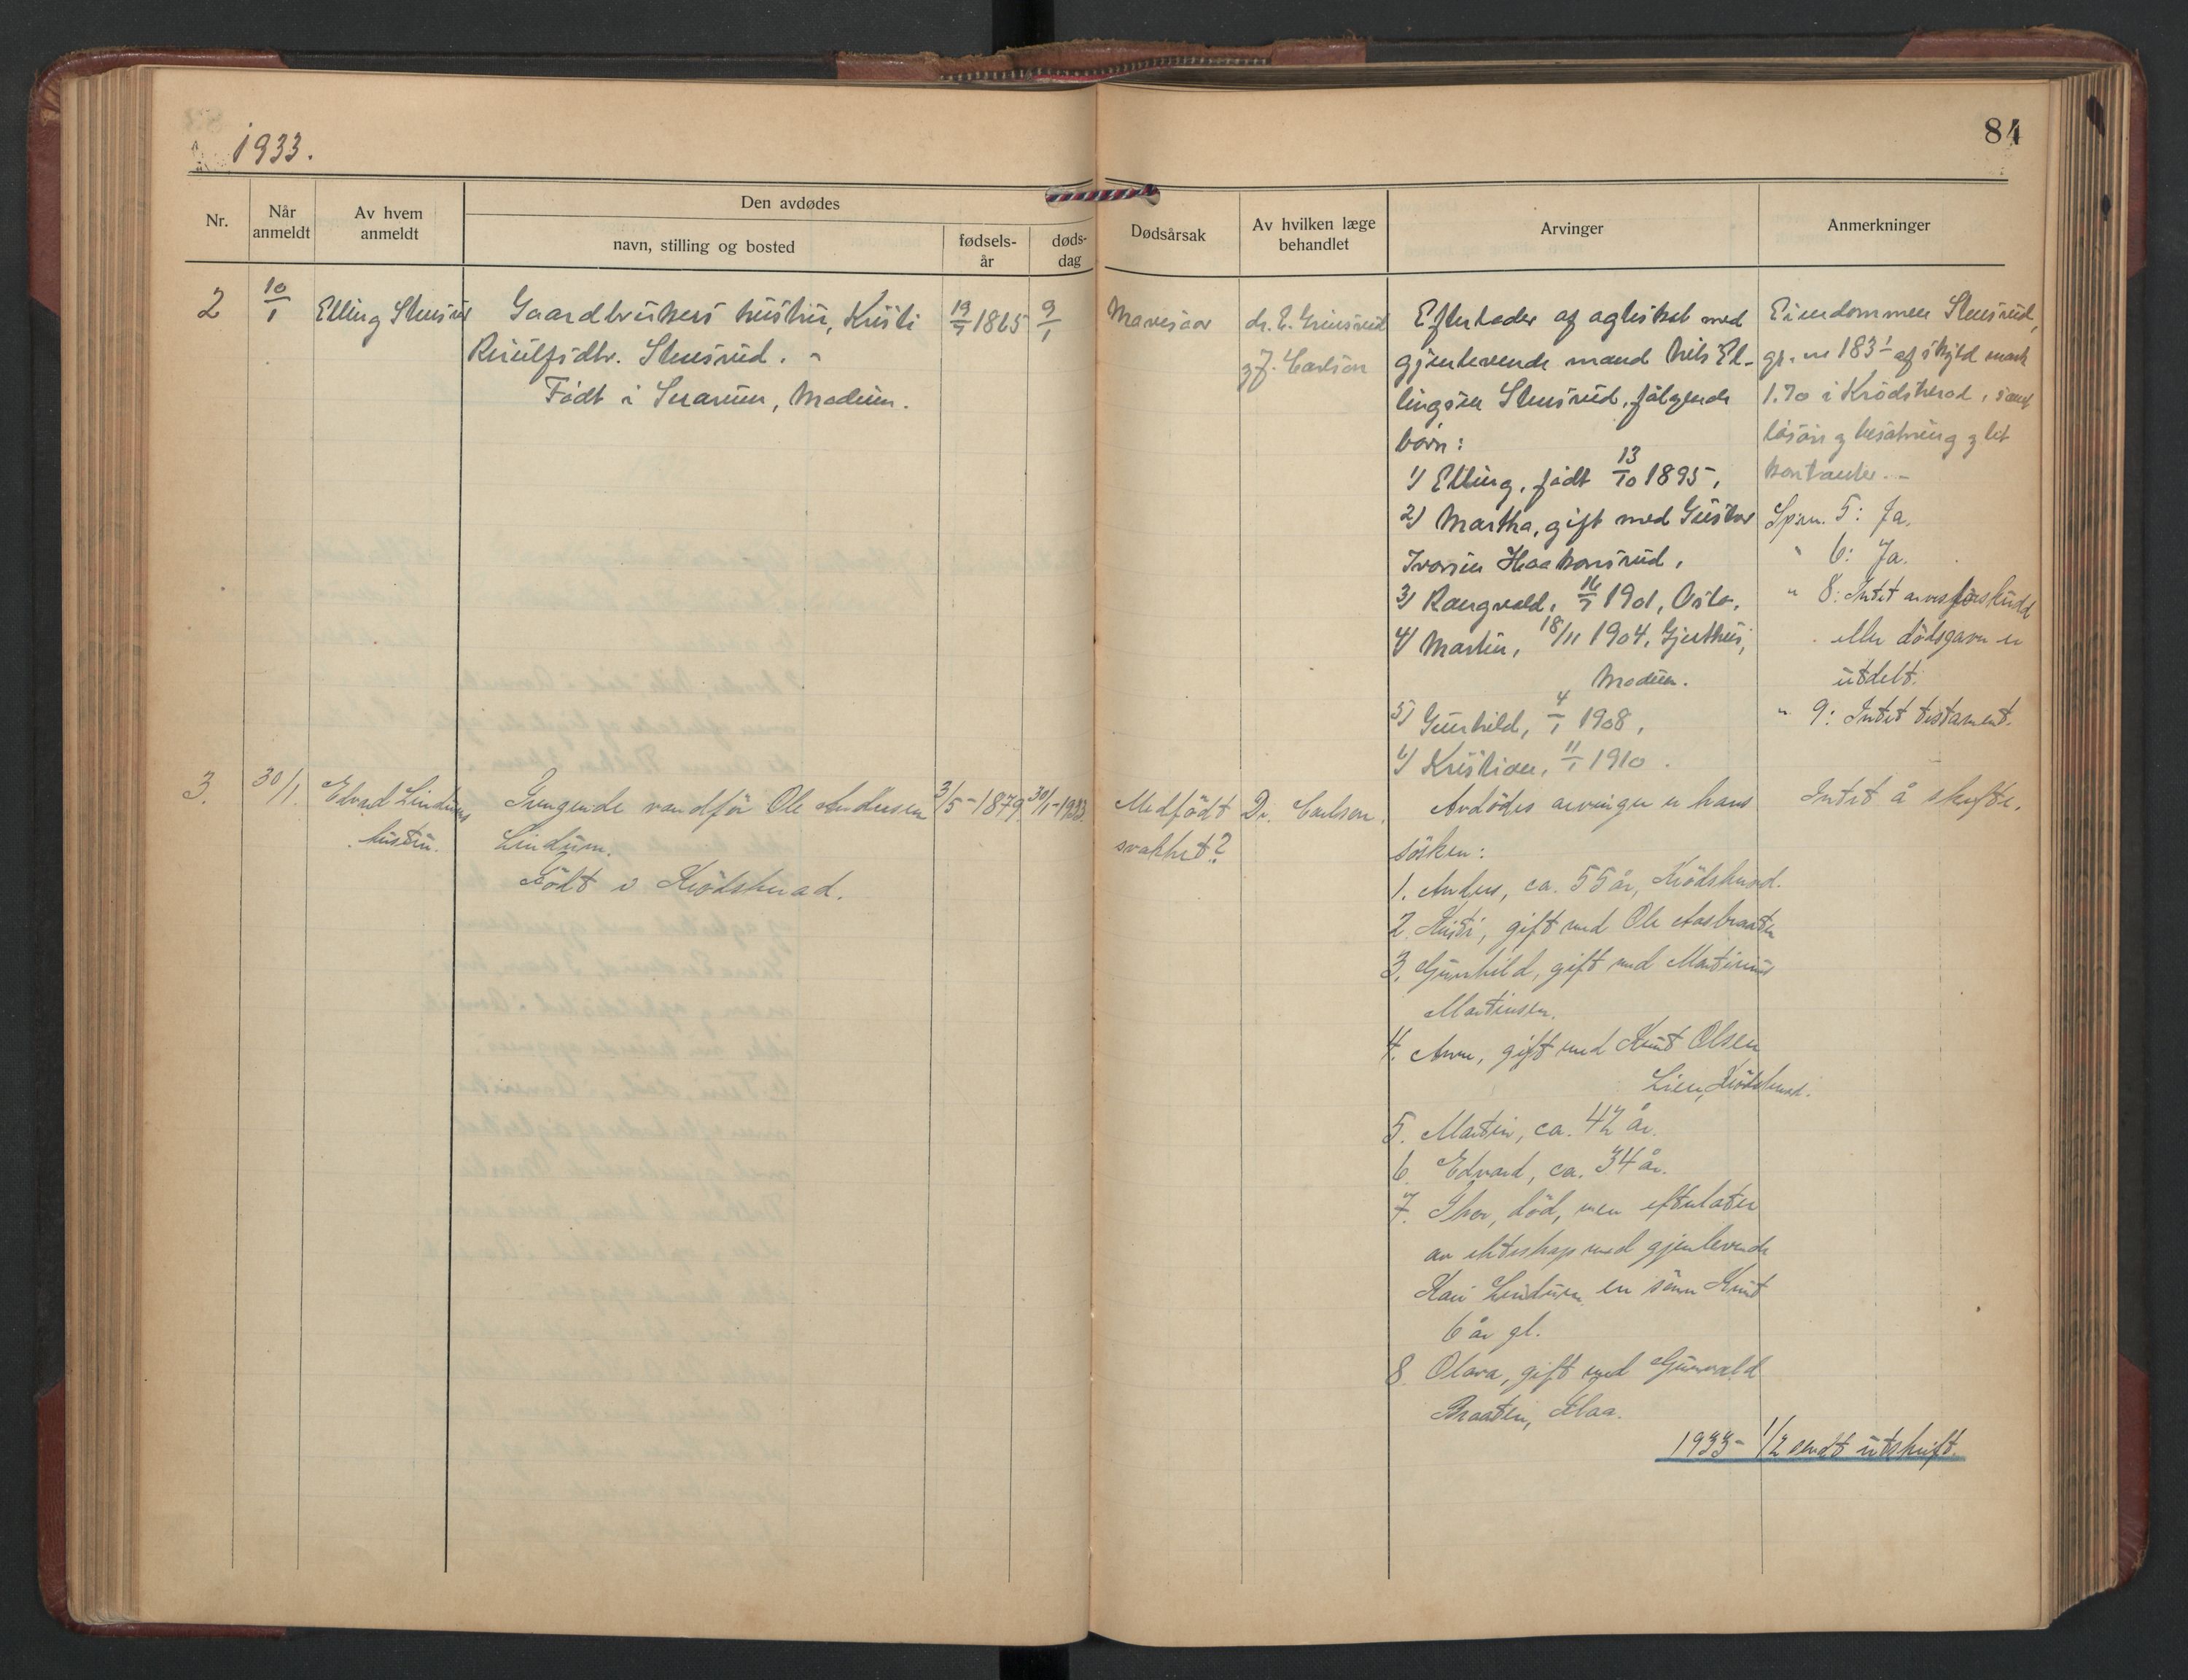 84
1933.
Nr.
Når
anmeldt
Av hvem
anmeldt
Den avdødes
navn, stilling og bosted
fødsels-
år
døds-
dag
Dødsårsak
Av hvilken læge
behandlet
Arvinger
Anmerkninger
2
10/1
Elling Stensrud
Gaardbrukers hustru, Kristi
Stensrud. -
Født i Snarum, Modum.
1865
9/1
Mavesaar
dr. E. Grinsrud
og J. Carlson
Efterlader af agteskab med
gjenlevende mand Nils El-
lingsen Stensrud, følgende
børn:
1) Elling, født 13/10 1895,
2) Martha, gift med Gustav
Iversen Haakonsrud,
3) Rangvald, 1901, Oslo.
4) Martin, 18/11 1904, Gjethus,
Modum.
5) Gunhild, 4/1 1908,
6) Kristian, 11/1 1910.
Eiendommen Stensrud,
gr. nr 183/1 af skyld mark
1.70 i Krødsherad, samt
løsøre og besætning og lit
kontanter. -
Spm. 5: Ja.
" 6: Ja.
" 8: Intet arveforskudd
eller dødsgave er
utdelt.
" 9: Intet testament.
3.
30/1
Edvard Lindums
hustru.
Trengende vandfør Ole Andersen
Lindum.
Født i Krødsherad.
3/5-1879
30/1-1933.
Medfødt
svakhet?
Dr. Carlson.
Avdødes arvinger er hans
søsken:
1. Anders, ca. 55 år, Krødsherad.
2. Kristi, gift med Ole Aasbraaten
3. Gunhild, gift med Martinius
Martinsen.
4. Anne, gift med Knut Olsen
Lien, Krødsherad.
5. Martin, ca. 42 år.
6. Edvard, ca. 34 år.
7. Thor, død, men efterlater
av ekteskap med gjenlevende
Kari Lindum en sønn Knut
6 år gl.
8. Olava, gift med Gunvald
Braaten, Flaa.
Intet å skifte.
1933 - 1/2 sendt utskrift.